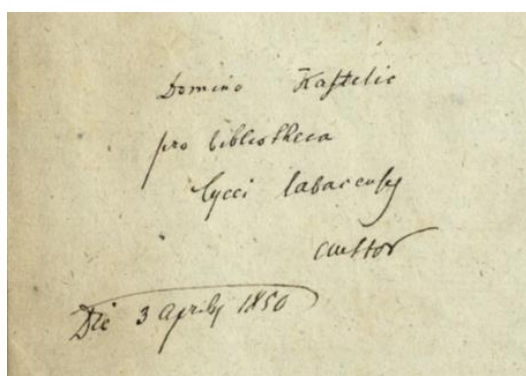 Domino Kastelic
pro bibliotheca
Lycei labacensis
auctor
Die 3 Aprilis 1850